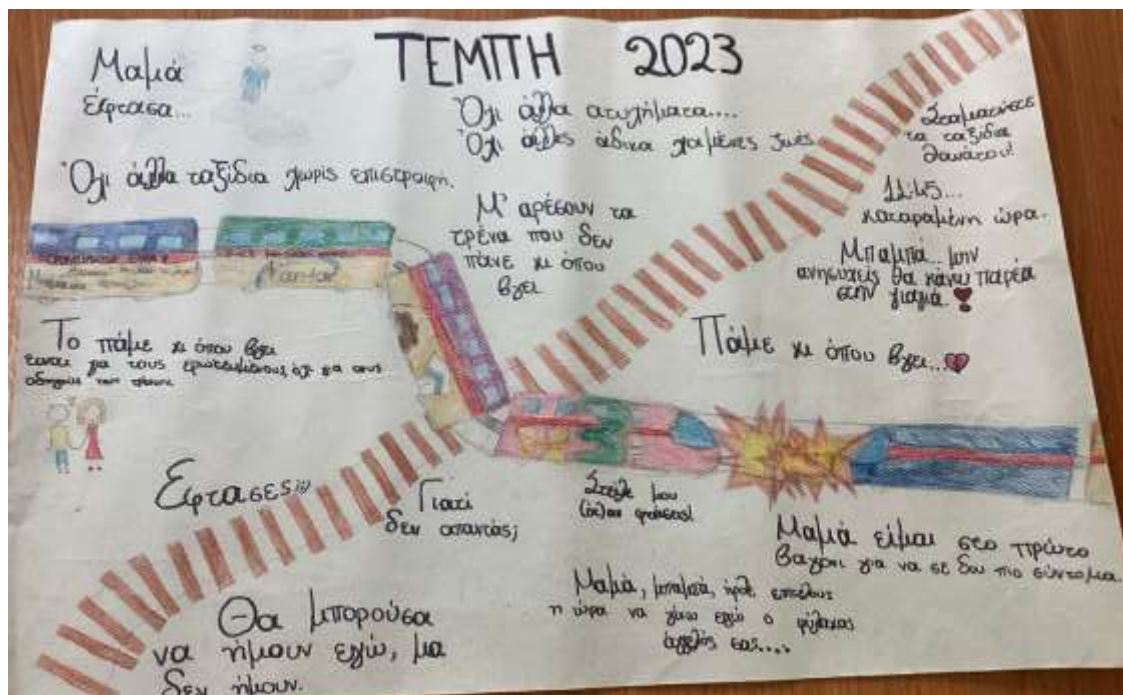 ΤΕΜΠΗ 2023
Μαμά
έφτασα...
Όχι άλλα ατυχήματα....
Όχι άλλες άδικα χαμένες ζωές
Σταματήστε
τα ταξίδια
θανάτου!
Όχι άλλα ταξίδια χωρίς επιστροφή.
11:45...
καταραμένη ώρα.
Μ' αρέσουν τα
τρένα που δεν
πάνε κι όπου
βγει
Μπαμπά... μην
ανησυχείς θα κάνω παρέα
στην γιαγιά.
Το πάμε κι όπου βγει
είναι για τους ερωτευμένους, όχι για τους
οδηγούς των
Πάμε κι όπου βγει...
Έφτασες;;;
Γιατί
δεν απαντάς;
Στείλε μου
όταν φτάσεις!
Μαμά είμαι στο πρώτο
βαγόνι για να σε δω πιο σύντομα.
Μαμά, μπαμπά, ήρθε επιτέλους
η ώρα να γίνω εγώ ο φύλακας
άγγελός σας....
Θα μπορούσα
να ήμουν εγώ, μα
δεν ήμουν.